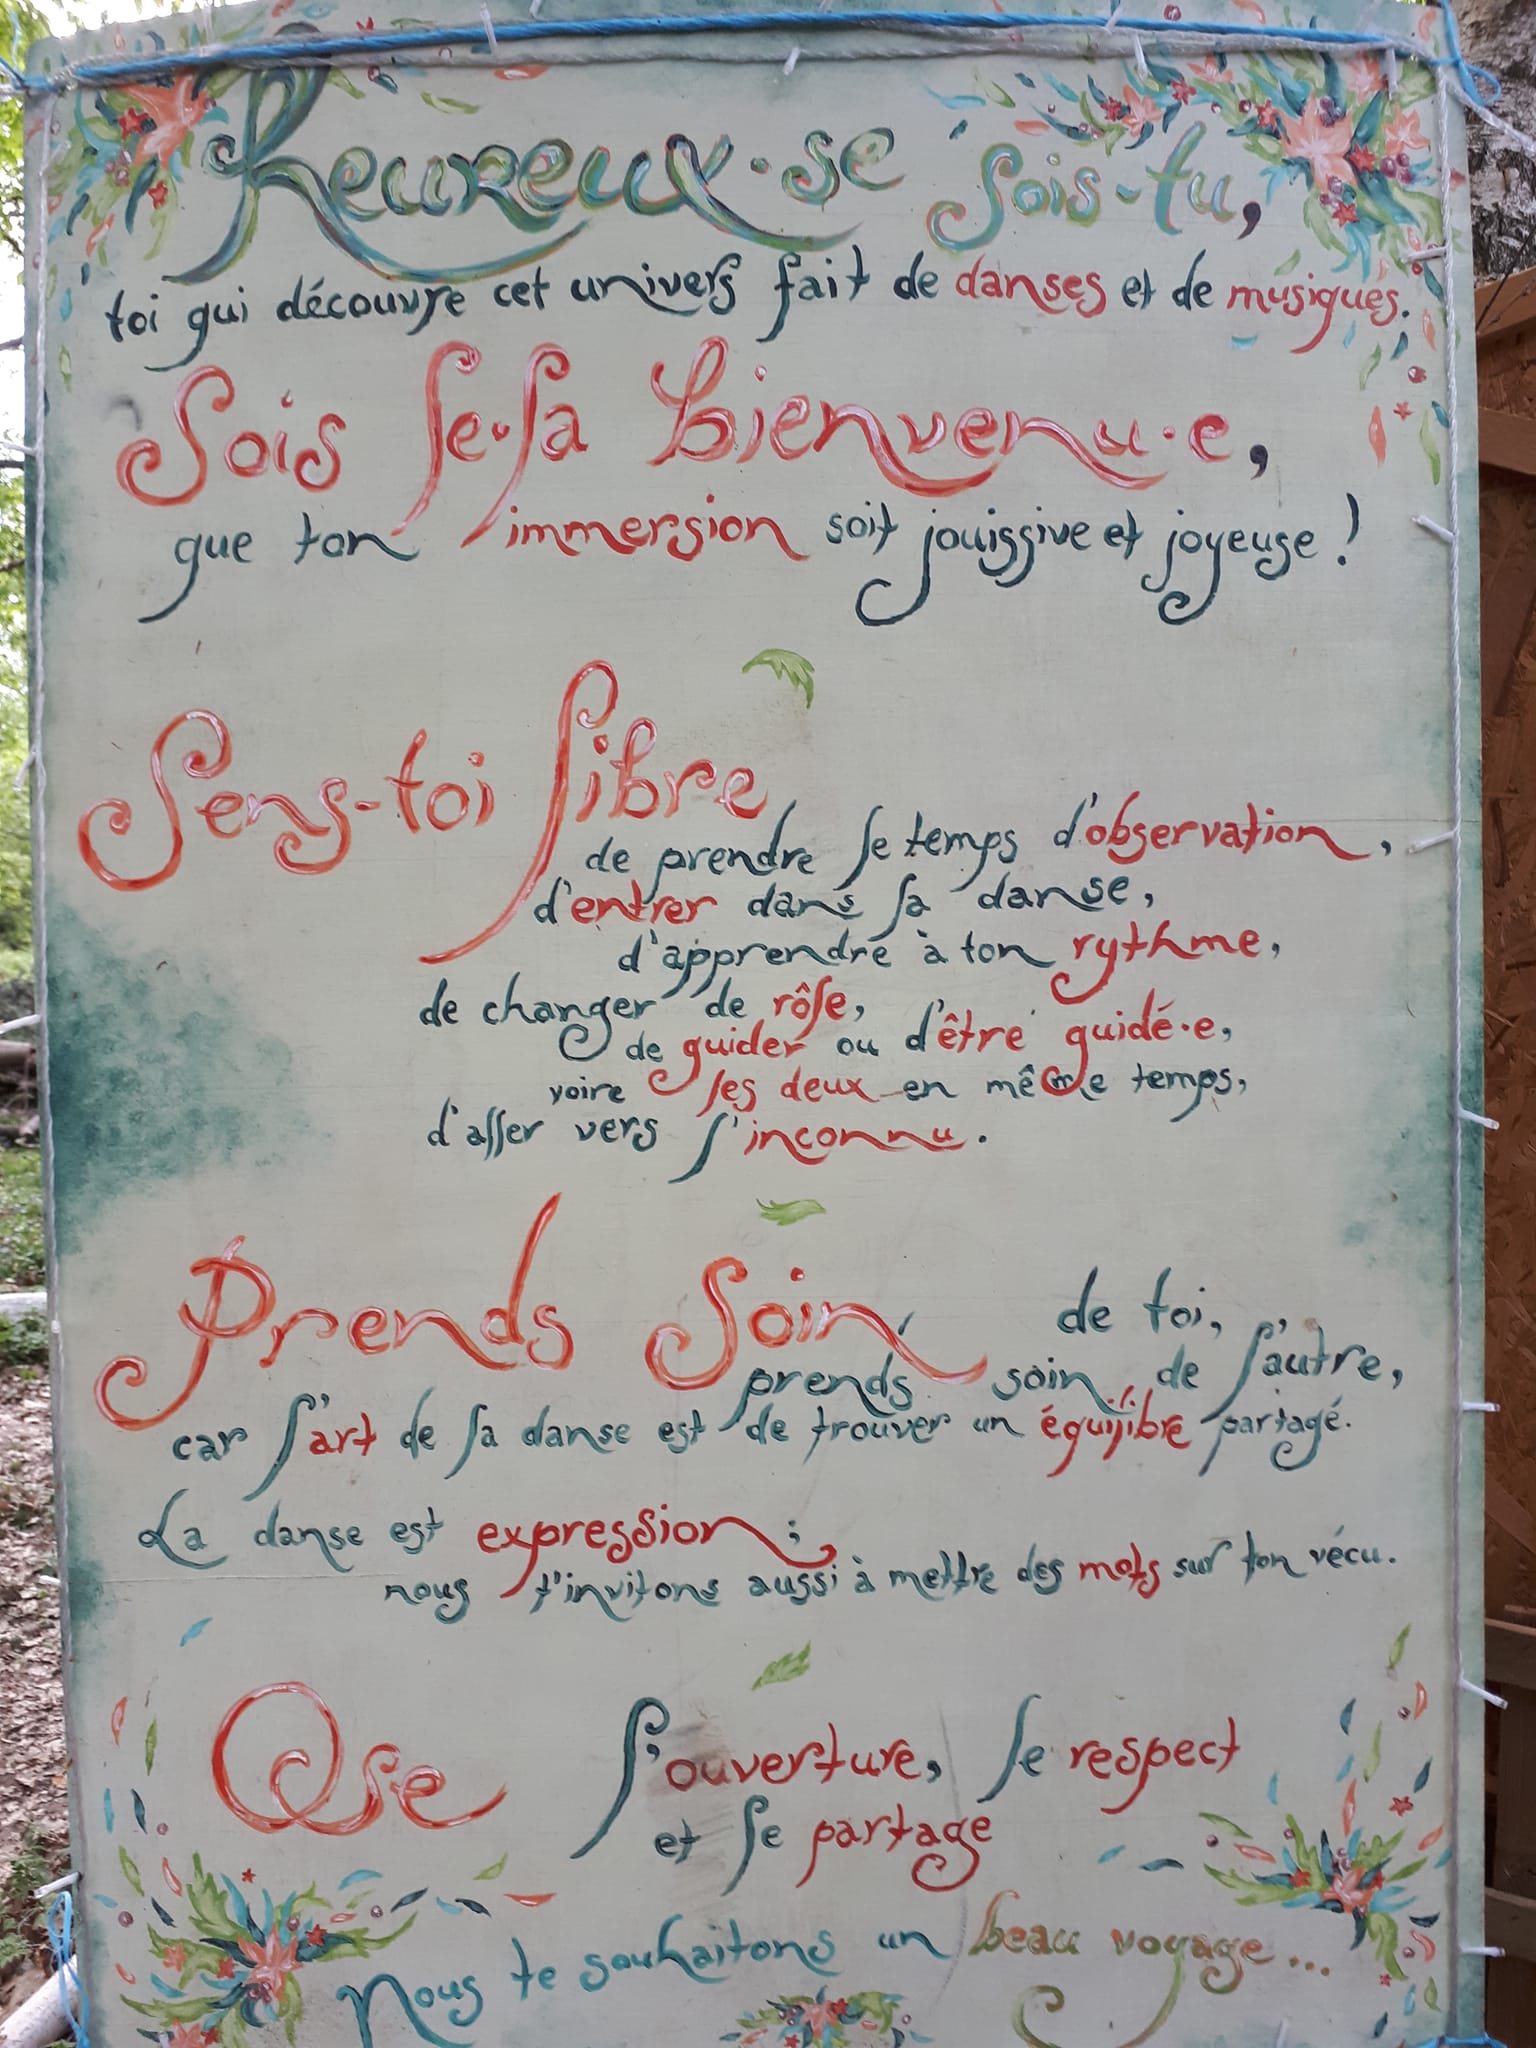 Heureux·se sois-tu,
toi qui découvre cet univers fait de danses et de musiques.
Sois le·la bienvenu·e,
que ton immersion soit jouissive et joyeuse !
Sens-toi libre
de prendre le temps d'observation,
d'entrer dans la danse,
d'apprendre à ton rythme,
de changer de rôle,
de guider ou d'être guidé·e,
voire les deux en même temps,
d'aller vers l'inconnu.
Prends soin de toi,
prends soin de l'autre,
car l'art de la danse est de trouver un équilibre partagé.
La danse est expression ;
nous t'invitons aussi à mettre des mots sur ton vécu.
Ose l'ouverture, le respect
et le partage
Nous te souhaitons un beau voyage...